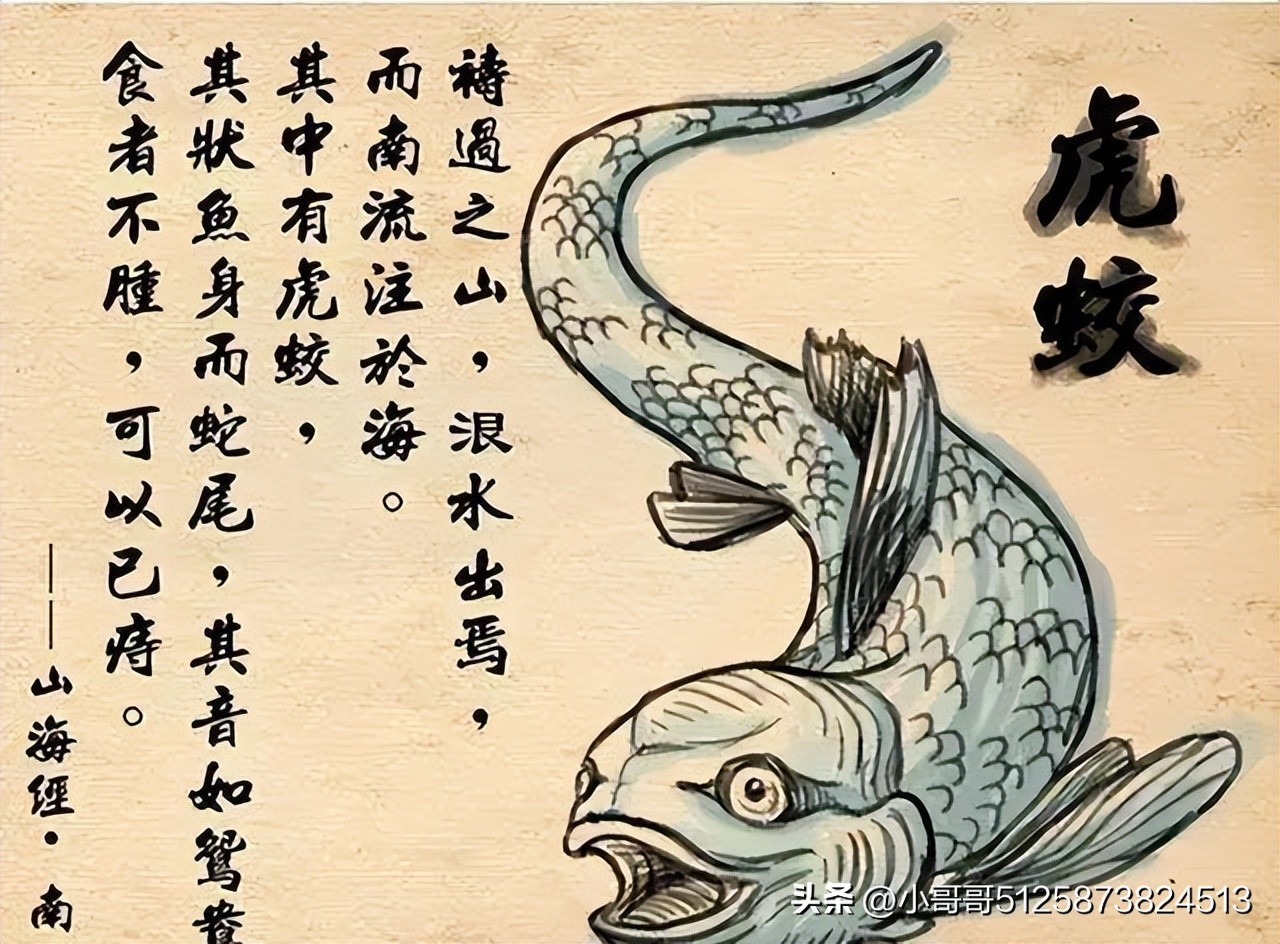 虎蛟
禱過之山，浪水出焉，
而南流注於海。
其中有虎蛟，
其狀魚身而蛇尾，其音如鴛鴦
食者不腫，可以已痔。
——山海經·南
头条 @小哥哥5125873824513